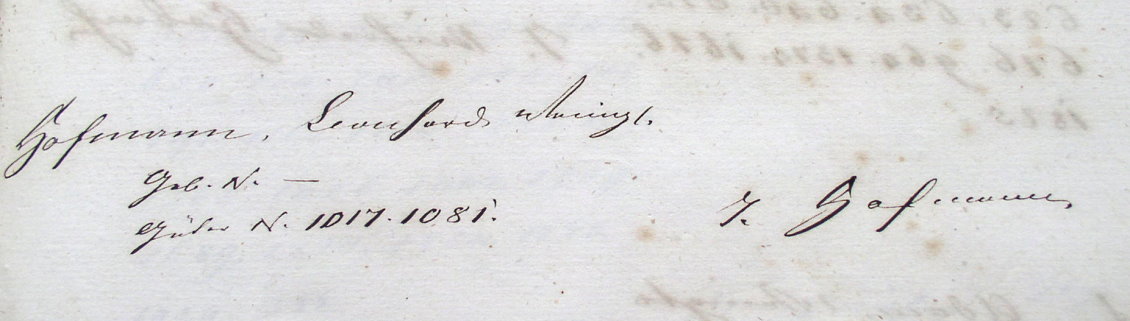 Hofmann, Leonhard
Geb. N. —
Güter N. 1017. 1081.
J. Hofmann